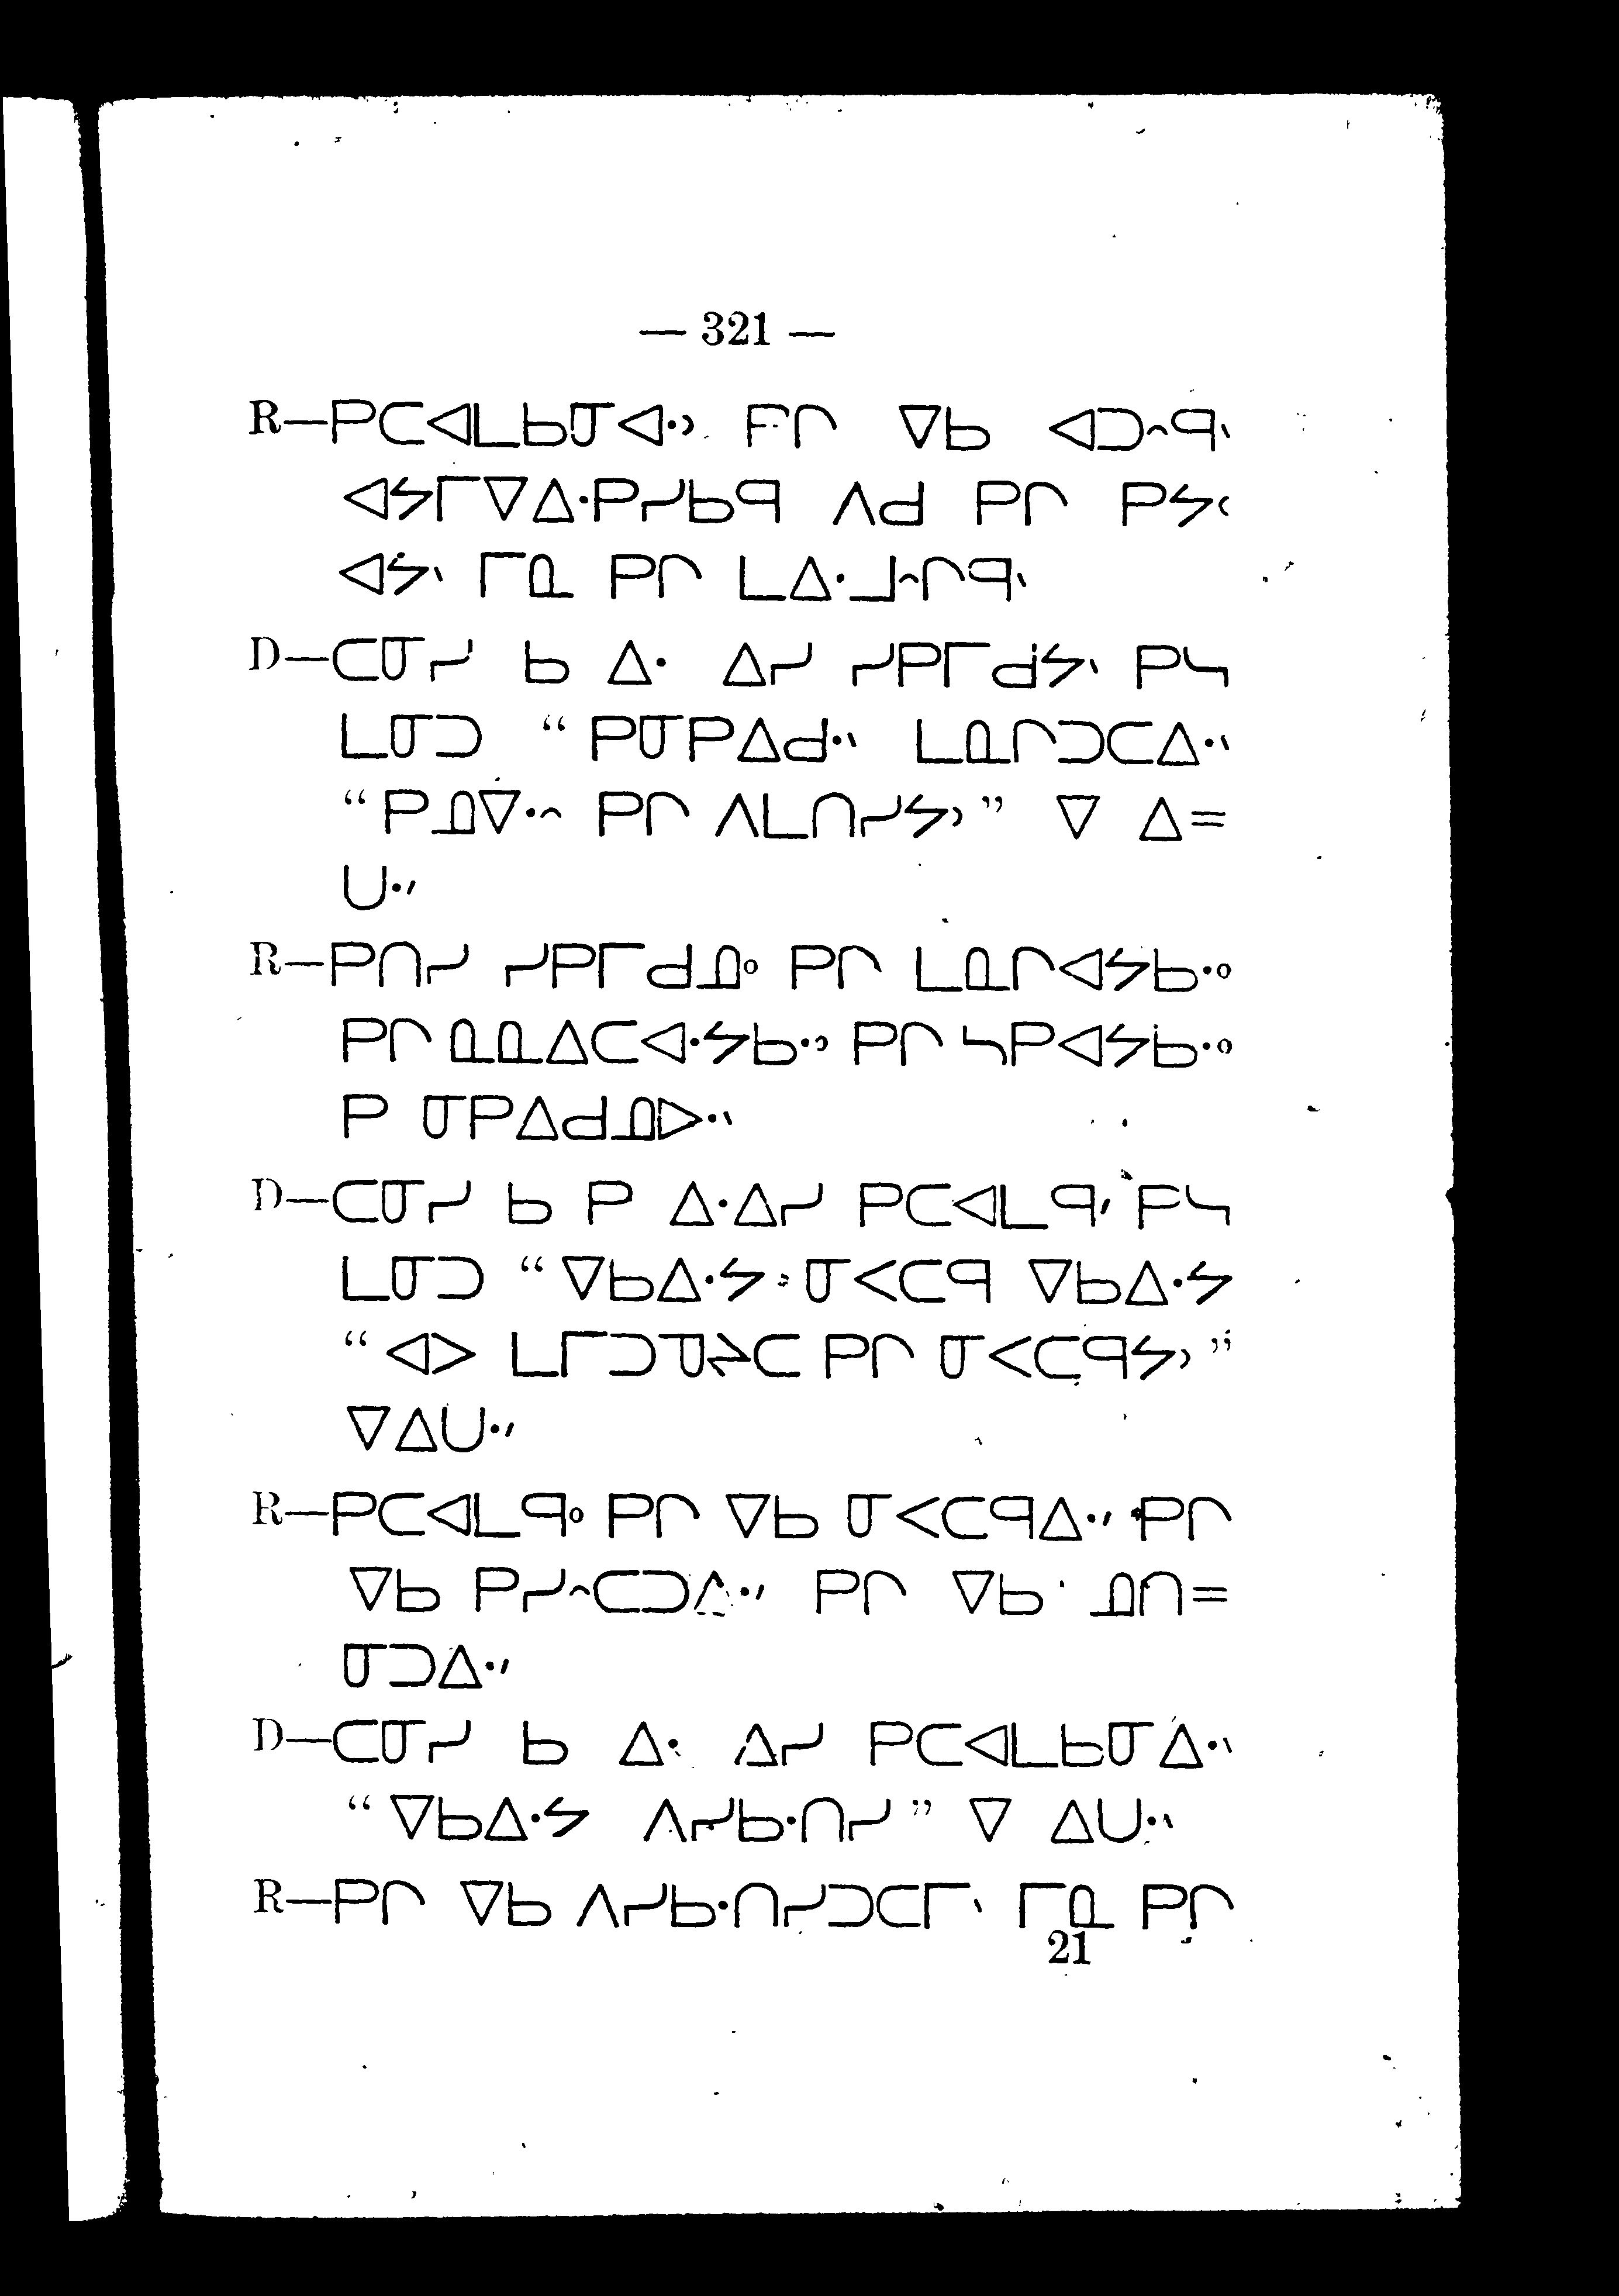 — 321 —
R—ᑭᑕᐊᒪᑲᓂᐊᐧᐣ ᑭᒋ ᐁᑲ ᐊᑐᐢᑫᐠ
ᐊᔕᒥᐁᐃᐧᑭᓯᑲᑫ ᐱᑯ ᑭᒋ ᑭᔕᑉ
ᐊᔕᐠ ᒥᓇ ᑭᒋ ᒪᐃᐧᒧᐢᒋᑫᐠ
D—ᑕᓂᓯ ᑲ ᐃᐧ ᐃᓯ ᓯᑭᒥᑯᔭᐠ ᑭᓴ
ᒪᓂᑐ “ ᑭᓂᑭᐃᑯᐧᐠ ᒪᓇᒋᑐᑕᐃᐧᐠ
“ ᑭᓄᐁᐧᐢ ᑭᒋ ᐱᒪᑎᓯᔕᐣ ” ᐁ ᐃ=
ᑌᐧᐟ
R—ᑭᑎᓯ ᓯᑭᒥᑯᓄᐤ ᑭᒋ ᒪᓇᒋᐊᔕᑲᐧᐤ
ᑭᒋ ᓇᓇᐃᑕᐊᐧᔕᑲᐧᐣ ᑭᒋ ᓴᑭᐊᔕᑲᐧᐤ
ᑭ ᓂᑭᐃᑯᓄᐅᐧᐠ
D—ᑕᓂᓯ ᑲ ᑭ ᐃᐧᐃᓯ ᑭᑕᐊᒪᑫᐟ ᑭᓴ
ᒪᓂᑐ “ ᐁᑲᐃᐧᔕ ᓂᐸᑕᑫ ᐁᑲᐃᐧᔕ
“ ᐊᐳ ᒪᒥᑐᓀᔨᑕ ᑭᒋ ᓂᐸᑕᑫᔕᐣ ”
ᐁᐃᑌᐧᐟ
R—ᑭᑕᐊᒪᑫᐤ ᑭᒋ ᐁᑲ ᓂᐸᑕᑫᐃᐧᐟ ᑭᒋ
ᐁᑲ ᑭᓯᐢᑕᑐᐃᐧᐟ ᑭᒋ ᐁᑲ ᓄᑎ=
ᓂᑐᐃᐧᐟ
D—ᑕᓂᓯ ᑲ ᐃᐧ ᐃᓯ ᑭᑕᐊᒪᑲᓂᐃᐧᐠ
“ ᐁᑲᐃᐧᔕ ᐱᓯᑲᐧᑎᓯ ” ᐁ ᐃᑌᐧᐠ
R—ᑭᒋ ᐁᑲ ᐱᓯᑲᐧᑎᓯᑐᑕᒥᐠ ᒥᓇ ᑭᒋ
21